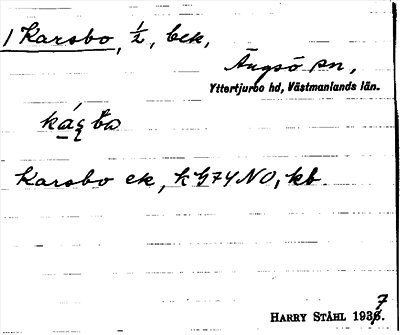 1 Karsbo, ½, bek,
Ängsö sn,
Yttertjurbo hd, Västmanlands län.
Karsbo ek, kb.
HARRY STÅHL 1937.